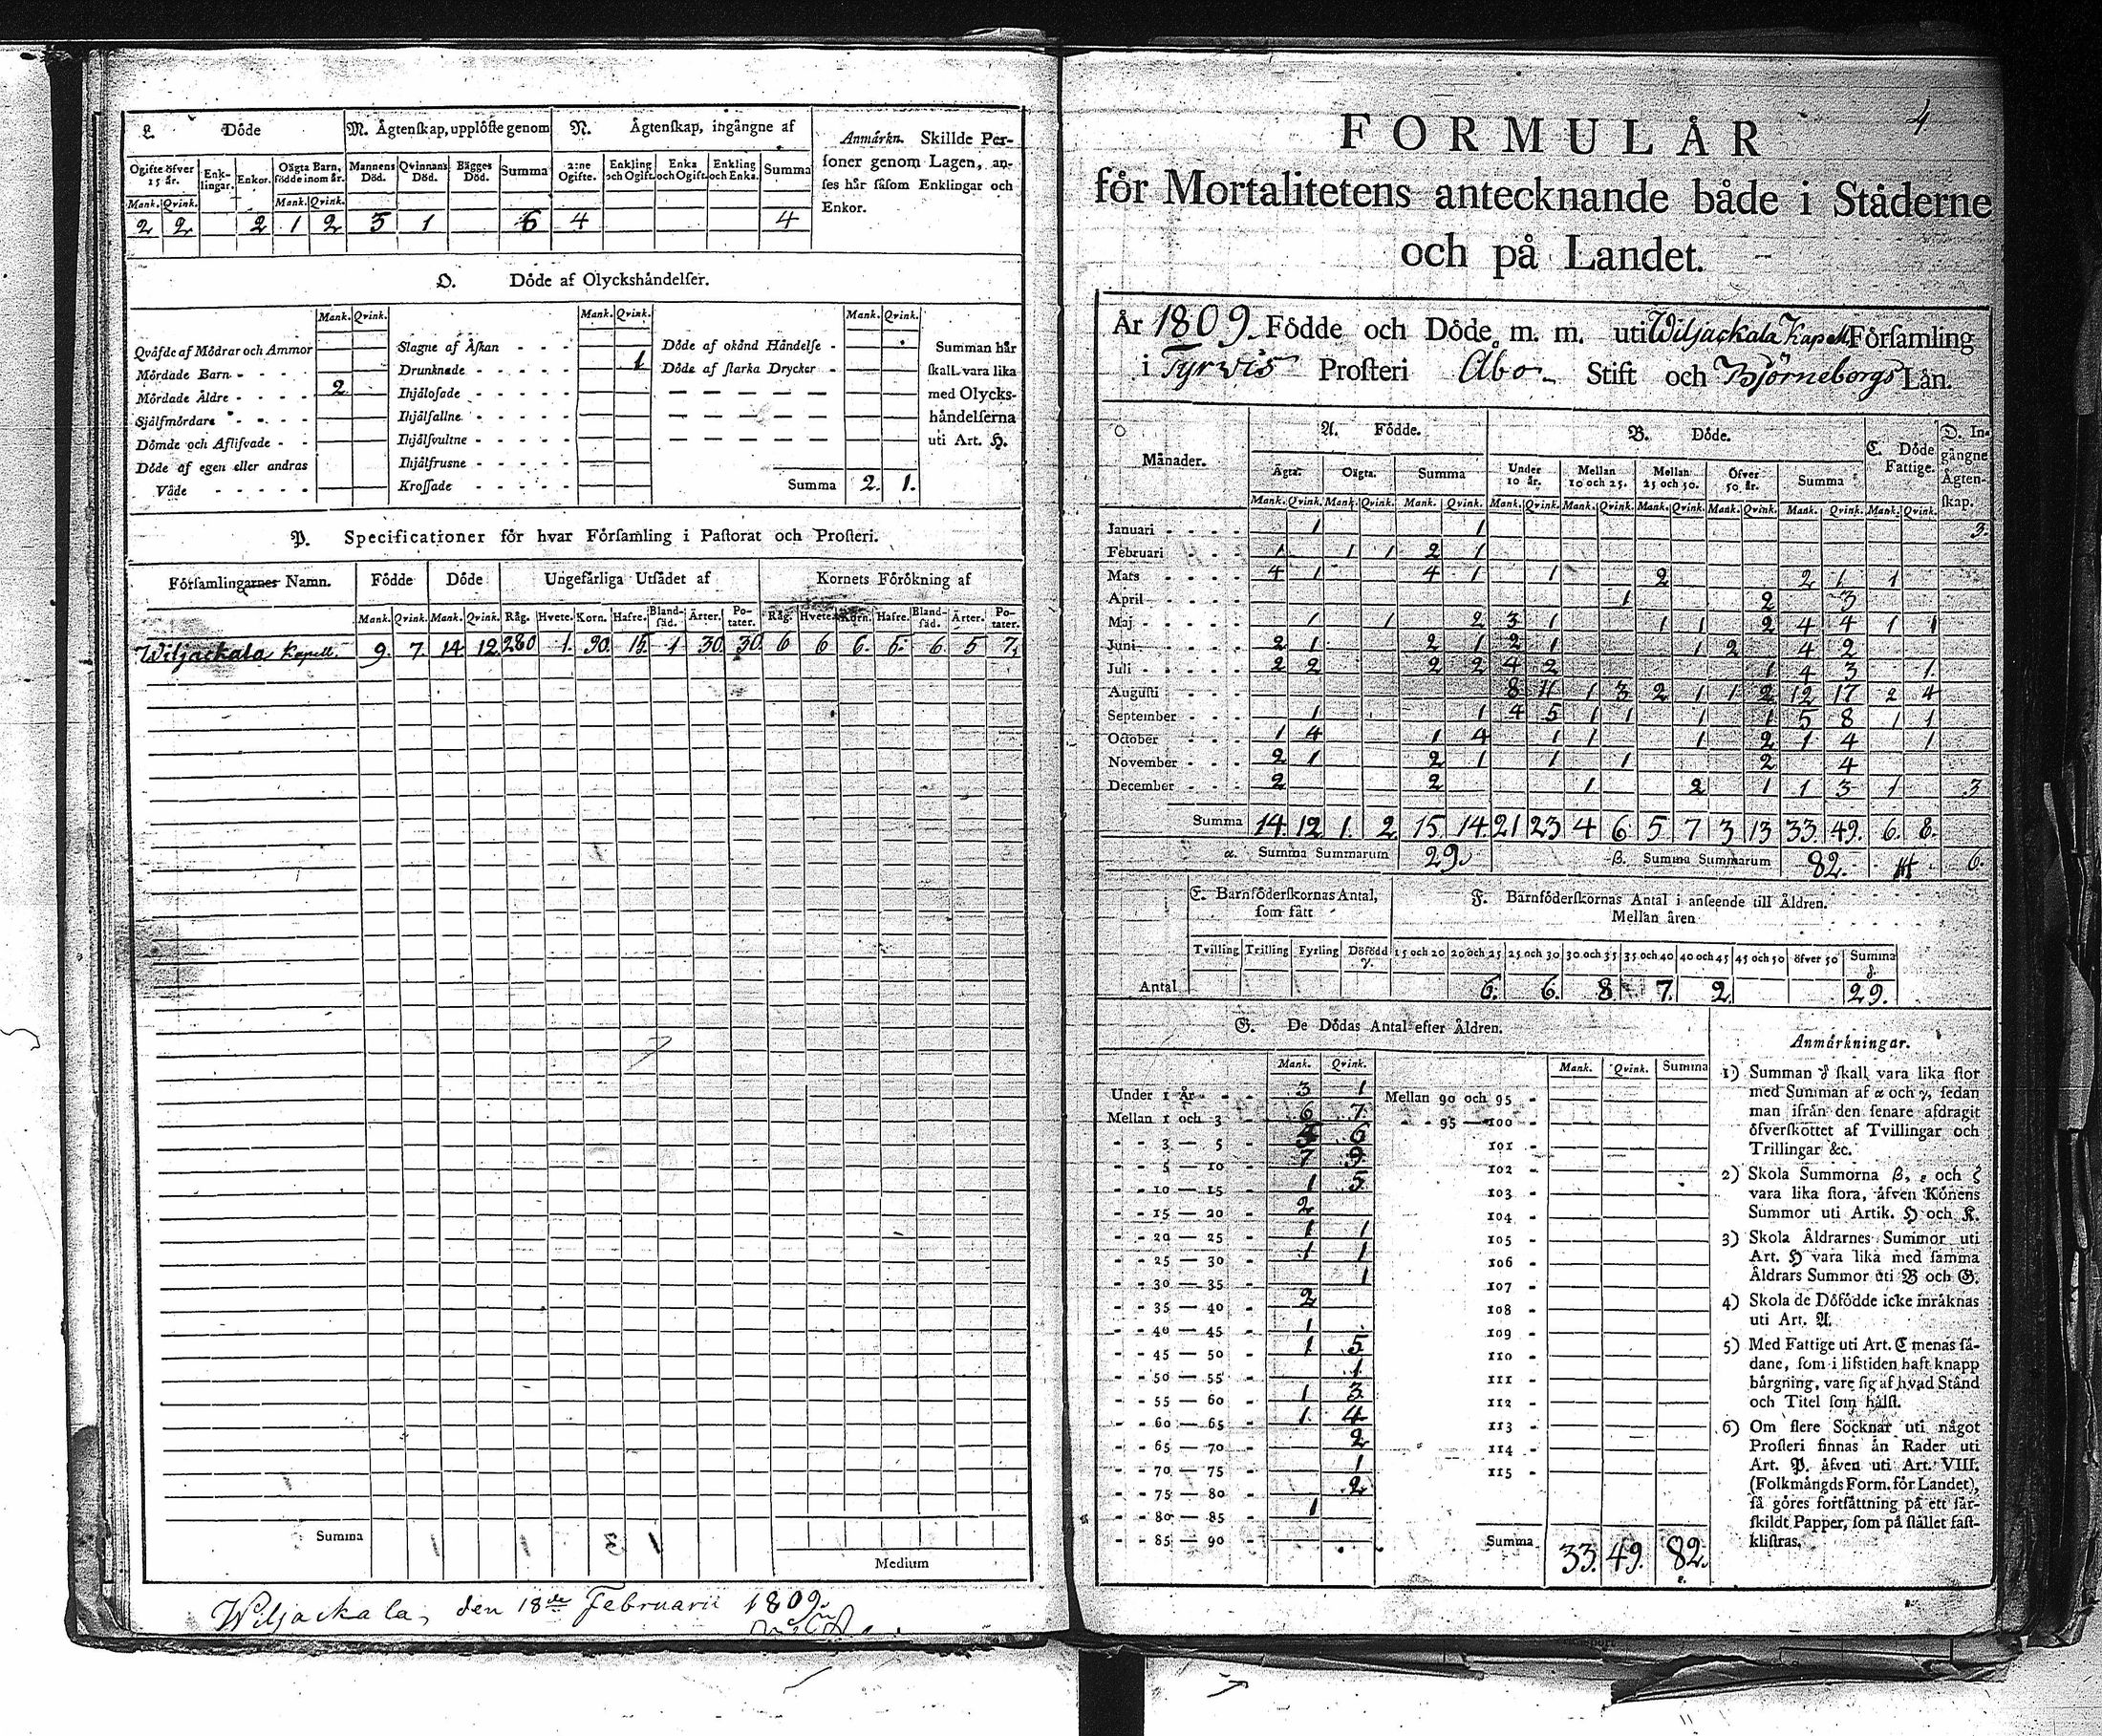 L. Döde
M. Ägtenskap, upplöste genom
N. Ägtenskap, ingångne af
Anmärkn. Skillde Per-
soner genom Lagen, an-
ses här såsom Enklingar och
Enkor.
Ogifte öfver 15 år. Enk-lingar. Enkor. Oägta Barn, födde inom år. Mannens Död. Qvinnans Död. Bägges Död. Summa 2:ne Ogifte. Enkling och Ogift. Enka och Ogift. Enkling och Enka. Summa
Mank. Qvink. Mank. Qvink.
2 2 2 1 2 5 1 6 4 4
O. Döde af Olyckshändelser.
Mank. Qvink. Mank. Qvink. Mank. Qvink.
Qväfde af Mödrar och Ammor
Mördade Barn
Mördade Äldre 2
Självmördare
Dömde och Aflifvade
Döde af egen eller andras
Våde
Slagne af Åskan
Drunknade 1
Ihjälosade
Ihjälfallne
Ihjälsvultne
Ihjälfrusne
Krossade
Döde af okänd Händelse
Döde af starka Drycker
Summa 2. 1.
Summan här
skall vara lika
med Olycks-
händelserna
uti Art. H.
P. Specificationer för hvar Församling i Pastorat och Prosteri.
Församlingarnes Namn. Födde Döde Ungefärliga Utsädet af Kornets Förökning af
Mank. Qvink. Mank. Qvink. Råg. Hvete. Korn. Hafre. Bland-säd. Ärter. Po-tater. Råg. Hvete. Korn. Hafre. Bland-säd. Ärter. Po-tater.
Wiljackala Kapell. 9. 7. 14 12 280 1. 90. 15. 1 30 30. 6 6 6. 5. 6. 5 7.
Summa
Medium
Wiljackala, den 18de Februarii 1809.
4
FORMULÄR
för Mortalitetens antecknande både i Städerne
och på Landet.
År 1809. Födde och Döde m. m. uti Wiljackala Kapell Församling
i Tyrvis Prosteri Åbo Stift och Björneborgs Län.
Månader. A. Födde. B. Döde. C. Döde Fattige. D. In-gångne Ägten-skap.
Ägta. Oägta. Summa Under 10 år. Mellan 10 och 25. Mellan 25 och 50. Öfver 50 år. Summa
Mank. Qvink. Mank. Qvink. Mank. Qvink. Mank. Qvink. Mank. Qvink. Mank. Qvink. Mank. Qvink. Mank. Qvink. Mank. Qvink.
Januari 1 1 3.
Februari 1 1 1 2 1
Mars 4 1 4 1 1 2 2 1 1
April 1 2 3
Maj 1 1 2 3 1 1 1 2 4 4 1 1
Juni 2 1 2 1 2 1 1 2 4 2
Juli 2 2 2 2 4 2 1 4 3 1.
Augusti 8 11 1 3 2 1 1 2 12 17 2 4
September 1 1 4 5 1 1 1 1 5 8 1 1
October 1 4 1 4 1 1 1 2 1 4 1
November 2 1 2 1 1 1 2 4
December 2 2 1 2 1 1 3 1 3
Summa 14. 12 1. 2 15 14 21 23 4 6 5 7 3 13 33 49. 6. 8.
α. Summa Summarum 29. β. Summa Summarum 82. 6.
E. Barnföderskornas Antal, som fått
F. Barnföderskornas Antal i anseende till Åldren.
Mellan åren
Tvilling Trilling Fyrling Döfödd γ. 15 och 20 20 och 25 25 och 30 30 och 35 35 och 40 40 och 45 45 och 50 öfver 50 Summa δ.
Antal 6. 6. 8 7. 2 29.
G. De Dödas Antal efter Åldren.
Mank. Qvink. Mank. Qvink. Summa
Under 1 År 3 1
Mellan 1 och 3 6 7.
3 — 5 6
5 — 10 7 9
10 — 15 1 5
15 — 20 2
20 — 25 1 1
25 — 30 1 1
30 — 35 1
35 — 40 2
40 — 45 1
45 — 50 1 5
50 — 55 1
55 — 60 1 3
60 — 65 1. 4
65 — 70 2
70 — 75 1
75 — 80 2
80 — 85 1
85 — 90
Mellan 90 och 95
95 — 100
101
102
103
104
105
106
107
108
109
110
111
112
113
114
115
Summa 33. 49. 82.
ε.
Anmärkningar.
1) Summan δ skall vara lika stor
med Summan af α och γ, sedan
man ifrån den senare afdragit
öfverskottet af Tvillingar och
Trillingar &c.
2) Skola Summorna β, ε och ζ
vara lika stora, äfven Könens
Summor uti Artik. H och K.
3) Skola Åldrarnes Summor uti
Art. H vara lika med samma
Åldrars Summor uti B och G.
4) Skola de Döfödde icke inräknas
uti Art. A.
5) Med Fattige uti Art. C menas så-
dane, som i lifstiden haft knapp
bärgning, vare sig af hvad Stånd
och Titel som hälst.
6) Om flere Socknar uti något
Prosteri finnas än Rader uti
Art. P. äfven uti Art. VIII.
(Folkmängds Form. för Landet),
så göres fortsättning på ett sär-
skildt Papper, som på stället fast-
klistras.